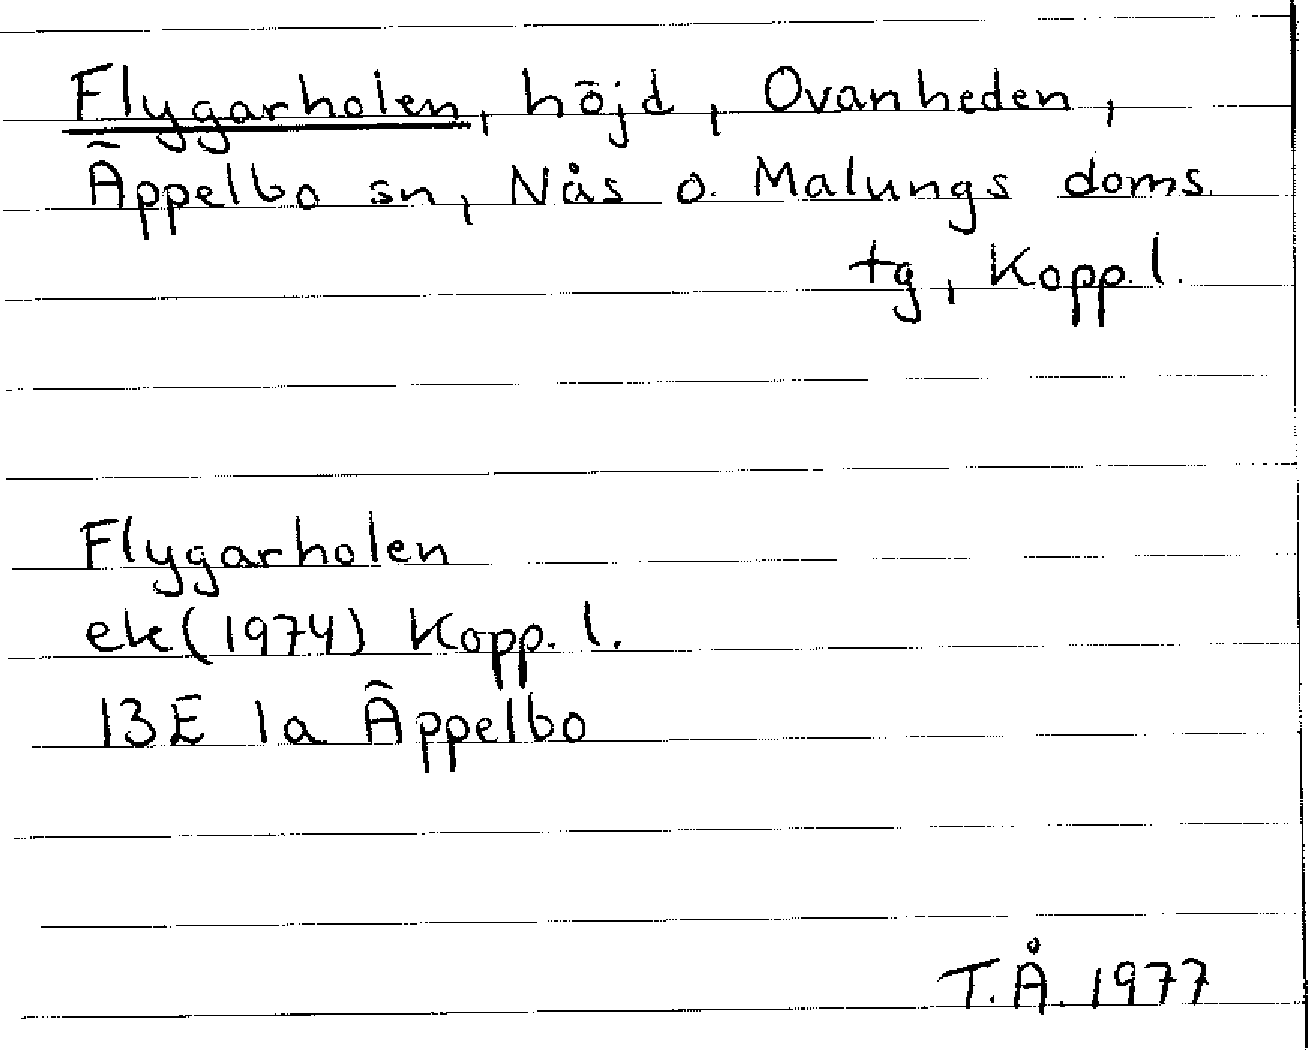 Flygarholen, höjd, Ovanheden,
Äppelbo sn, Nås o. Malungs doms.
tg, Kopp.l.
Flygarholen
ek(1974) Kopp. l.
13E 1a Äppelbo
T.Å. 1977